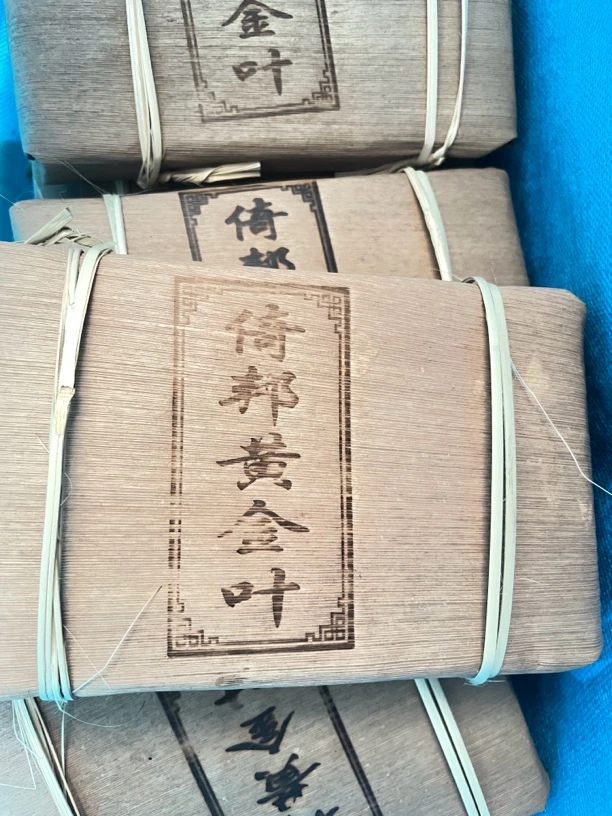 金叶
倚邦
倚邦黄金叶
黄金